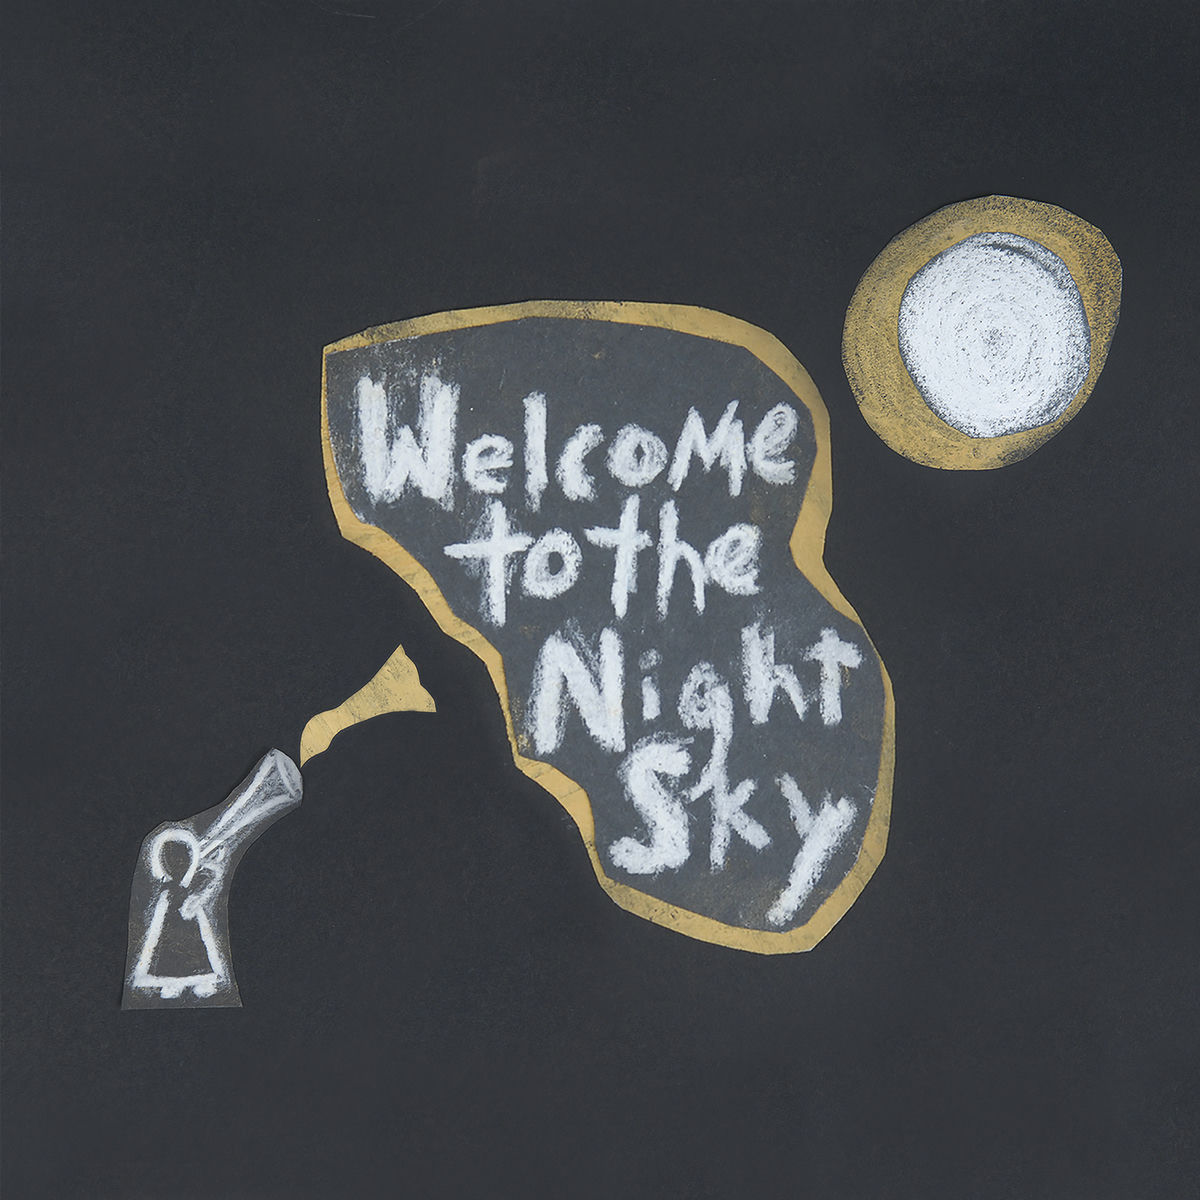 Welcome
to the
Night
Sky